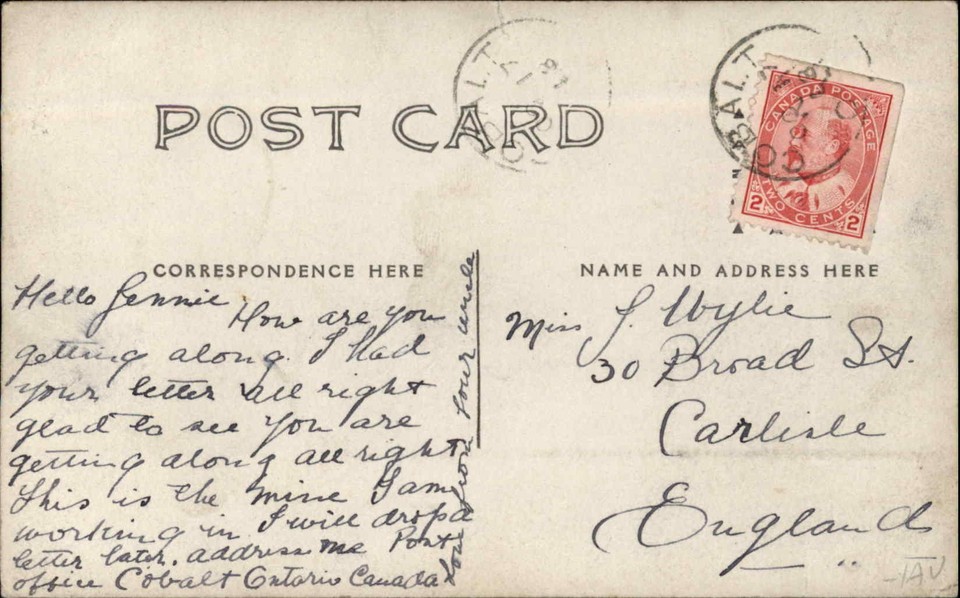 POST CARD
COBALT
COBALT
CANADA POSTAGE
2 TWO CENTS 2
CORRESPONDENCE HERE
Hello Jennie
How are you
getting along. I had
your letter all right
glad to see you are
getting along all right
This is the mine I am
working in I will drop a
letter later. address me Post
office Cobalt Ontario Canada
Love from your uncle
NAME AND ADDRESS HERE
Miss J. Wylie
30 Broad St.
Carlisle
England